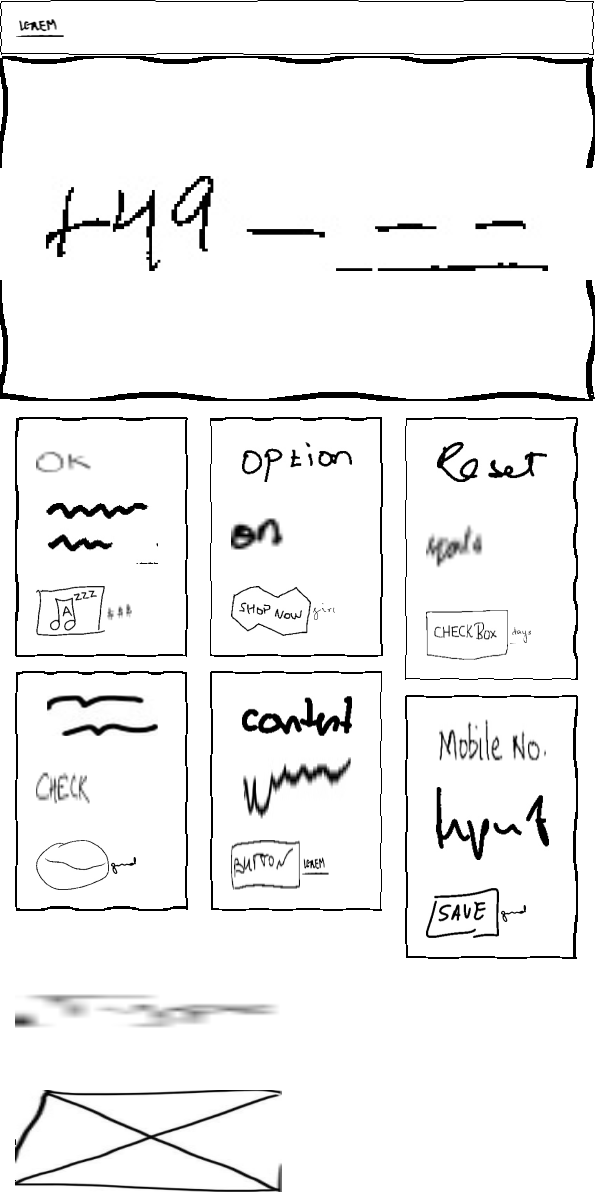 LOREM
+49
OK
zzz
A
$$$
Option
on
SHOP NOW girl
Reset
goals
CHECKBOX days
CHECK
good
content
BUTTON LOREM
Mobile No.
Input
SAVE good